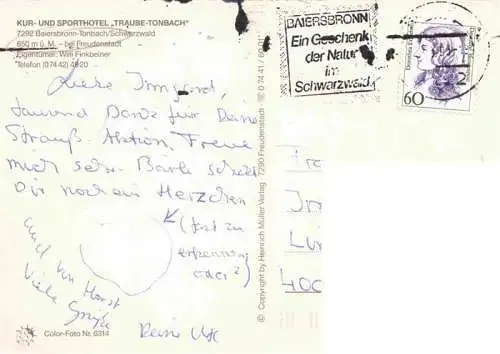 KUR- UND SPORTHOTEL „TRAUBE-TONBACH"
7292 Baiersbronn-Tonbach/Schwarzwald
650 m ü. M. – bei Freudenstadt
Eigentümer: Willi Finkbeiner
Telefon (07442) 4920
Liebe Irmgard,
tausend Dank für Deine
Strauß-Aktion. Freue
mich sehr. Bärli schickt
Dir noch ein Herzchen
(fast zu
erkennen
oder?)
und von Horst
Viele Grüße
Deine
Color-Foto Nr. 6314
© Copyright by Heinrich Müller Verlag · 7290 Freudenstadt ☏ 0 74 41 /
BAIERSBRONN
Ein Geschenk
der Natur
im
Schwarzwald
Deutsche Bundespost
60
400